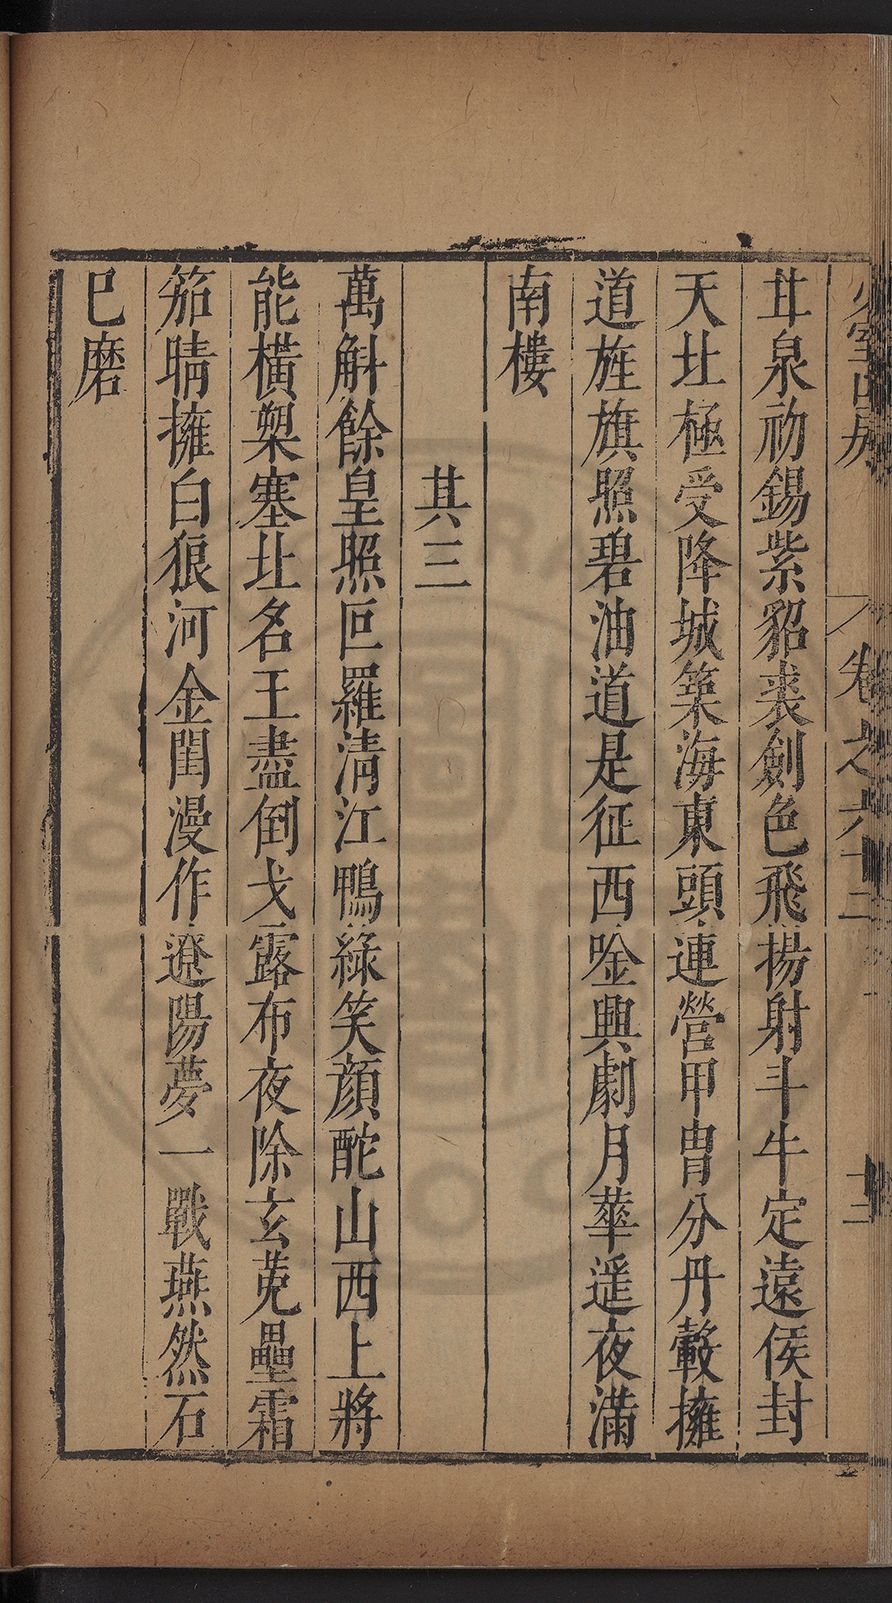 少室山房
卷之六十三
十三
甘泉初錫紫貂裘劍色飛揚射斗牛定遠侯封
天北極受降城築海東頭連營甲冑分丹轂擁
道旌旗照碧油道是征西唫興劇月華遥夜滿
南樓
其三
萬斛餘皇照叵羅清江鴨綠笑顔酡山西上將
能橫槊塞北名王盡倒戈露布夜除玄菟壘霜
笳晴擁白狼河金閨漫作遼陽夢一戰燕然石
已磨